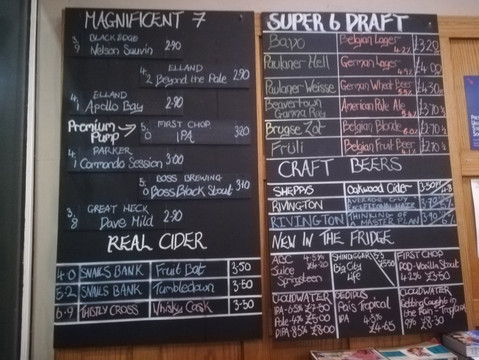 MAGNIFICENT 7
3.9 BLACKEDGE
Nelson Sauvin 2.90
4.2 ELLAND
Beyond the Pale 2.90
4.1 ELLAND
Apollo Bay 2.90
Premium Pump → 5.0 FIRST CHOP
IPA 3.20
4.1 PARKER
Commando Session 3.00
5.0 BOSS BREWING
Boss Black Stout 3.10
3.8 GREAT HECK
Dave Mild 2.90
REAL CIDER
4.0 SNAILS BANK Fruit Bat 3.50
5.2 SNAILS BANK Tumbledown 3.50
6.9 THISTLY CROSS Whisky Cask 3.50
SUPER 6 DRAFT
Bavo Belgian Lager 4.2% £3.20
Paulaner Hell German Lager 4.9% £4.00
Paulaner Weisse German Wheat Beer £4.30
Beavertown Gamma Ray American Pale Ale £3.70
Brugse Zot Belgian Blonde £2.70 ½
Früli Belgian Fruit Beer £2.70 ½
CRAFT BEERS
SHEPPYS Oakwood Cider 3.50
RIVINGTON
RIVINGTON THINKING OF A MASTER PLAN
NEW IN THE FRIDGE
ABC Juice Springsteen
SHINDIGGER Big City Life
FIRST CHOP
POD-Vanilla Stout
4.2% £3.50
CLOUDWATER
OEDIPUS
Pais Tropical
IPA
£4.65
CLOUDWATER
Getting Caught in the Rain
9% £8.30